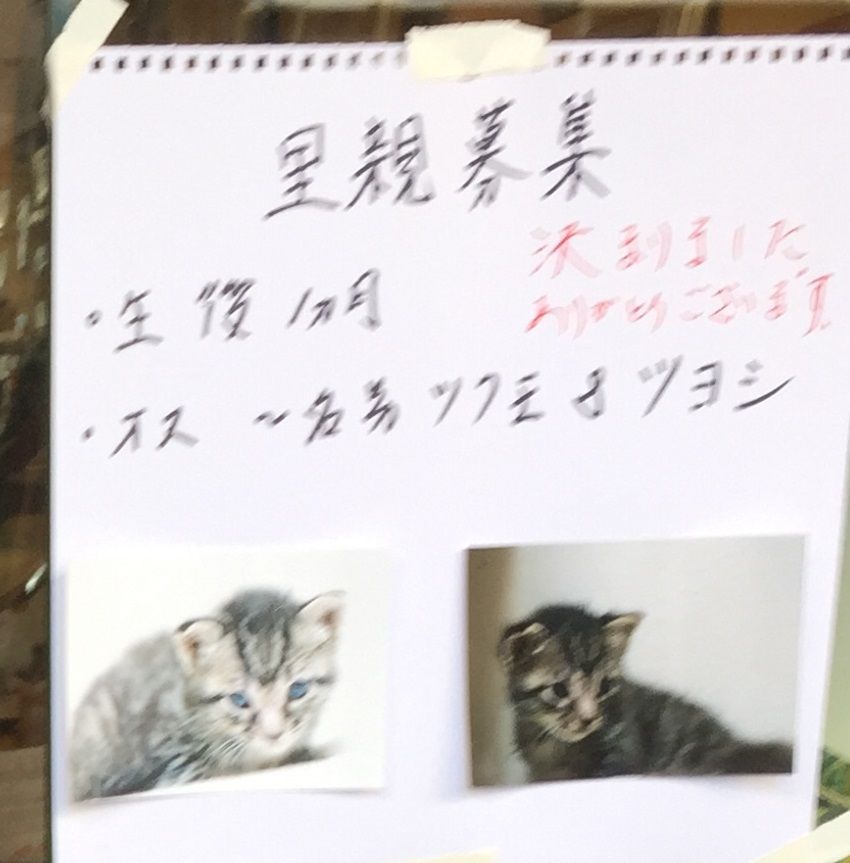 里親募集
決まりました
ありがとうございます
・生後1ヵ月
・オス 〜名前 ツクモ & ツヨシ